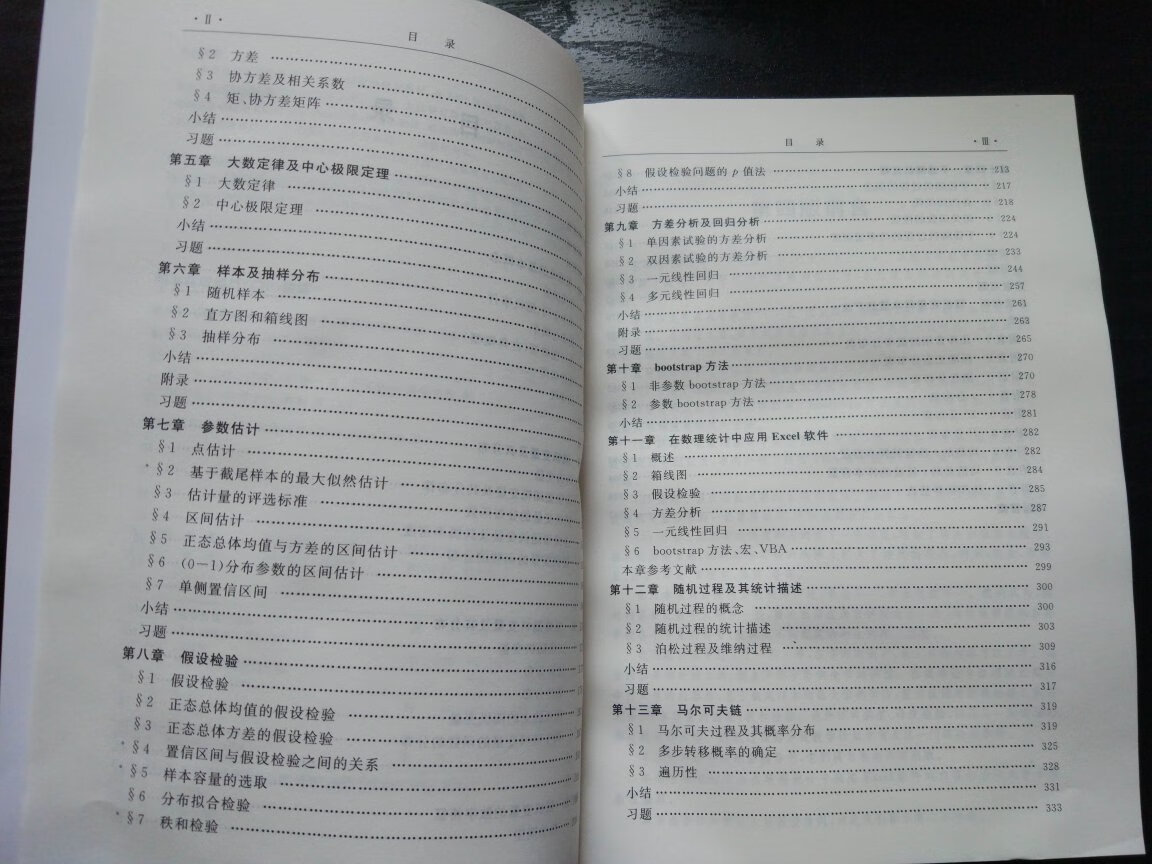 ·Ⅱ·
目 录
§2 方差
§3 协方差及相关系数
§4 矩、协方差矩阵
小结
习题
第五章 大数定律及中心极限定理
§1 大数定律
§2 中心极限定理
小结
习题
第六章 样本及抽样分布
§1 随机样本
§2 直方图和箱线图
§3 抽样分布
小结
附录
习题
第七章 参数估计
§1 点估计
*§2 基于截尾样本的最大似然估计
§3 估计量的评选标准
§4 区间估计
§5 正态总体均值与方差的区间估计
§6 (0-1)分布参数的区间估计
§7 单侧置信区间
小结
习题
第八章 假设检验
§1 假设检验
§2 正态总体均值的假设检验
§3 正态总体方差的假设检验
*§4 置信区间与假设检验之间的关系
*§5 样本容量的选取
§6 分布拟合检验
*§7 秩和检验
目 录
·Ⅲ·
§8 假设检验问题的 p 值法 213
小结 217
习题 218
第九章 方差分析及回归分析 224
§1 单因素试验的方差分析 224
§2 双因素试验的方差分析 233
§3 一元线性回归 244
§4 多元线性回归 257
小结 261
附录 263
习题 265
第十章 bootstrap 方法 270
§1 非参数 bootstrap 方法 270
§2 参数 bootstrap 方法 278
小结 281
第十一章 在数理统计中应用 Excel 软件 282
§1 概述 282
§2 箱线图 284
§3 假设检验 285
§4 方差分析 287
§5 一元线性回归 291
§6 bootstrap 方法、宏、VBA 293
本章参考文献 299
第十二章 随机过程及其统计描述 300
§1 随机过程的概念 300
§2 随机过程的统计描述 303
§3 泊松过程及维纳过程 309
小结 316
习题 317
第十三章 马尔可夫链 319
§1 马尔可夫过程及其概率分布 319
§2 多步转移概率的确定 325
§3 遍历性 328
小结 331
习题 333